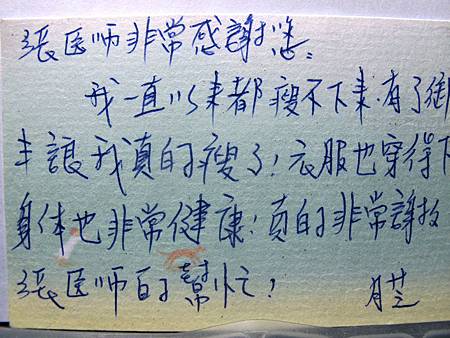 張医師非常感謝您:
我一直以來都瘦不下來,有了御
丰讓我真的瘦了!衣服也穿得下
身体也非常健康!真的非常謝
張医師的幫忙! 月